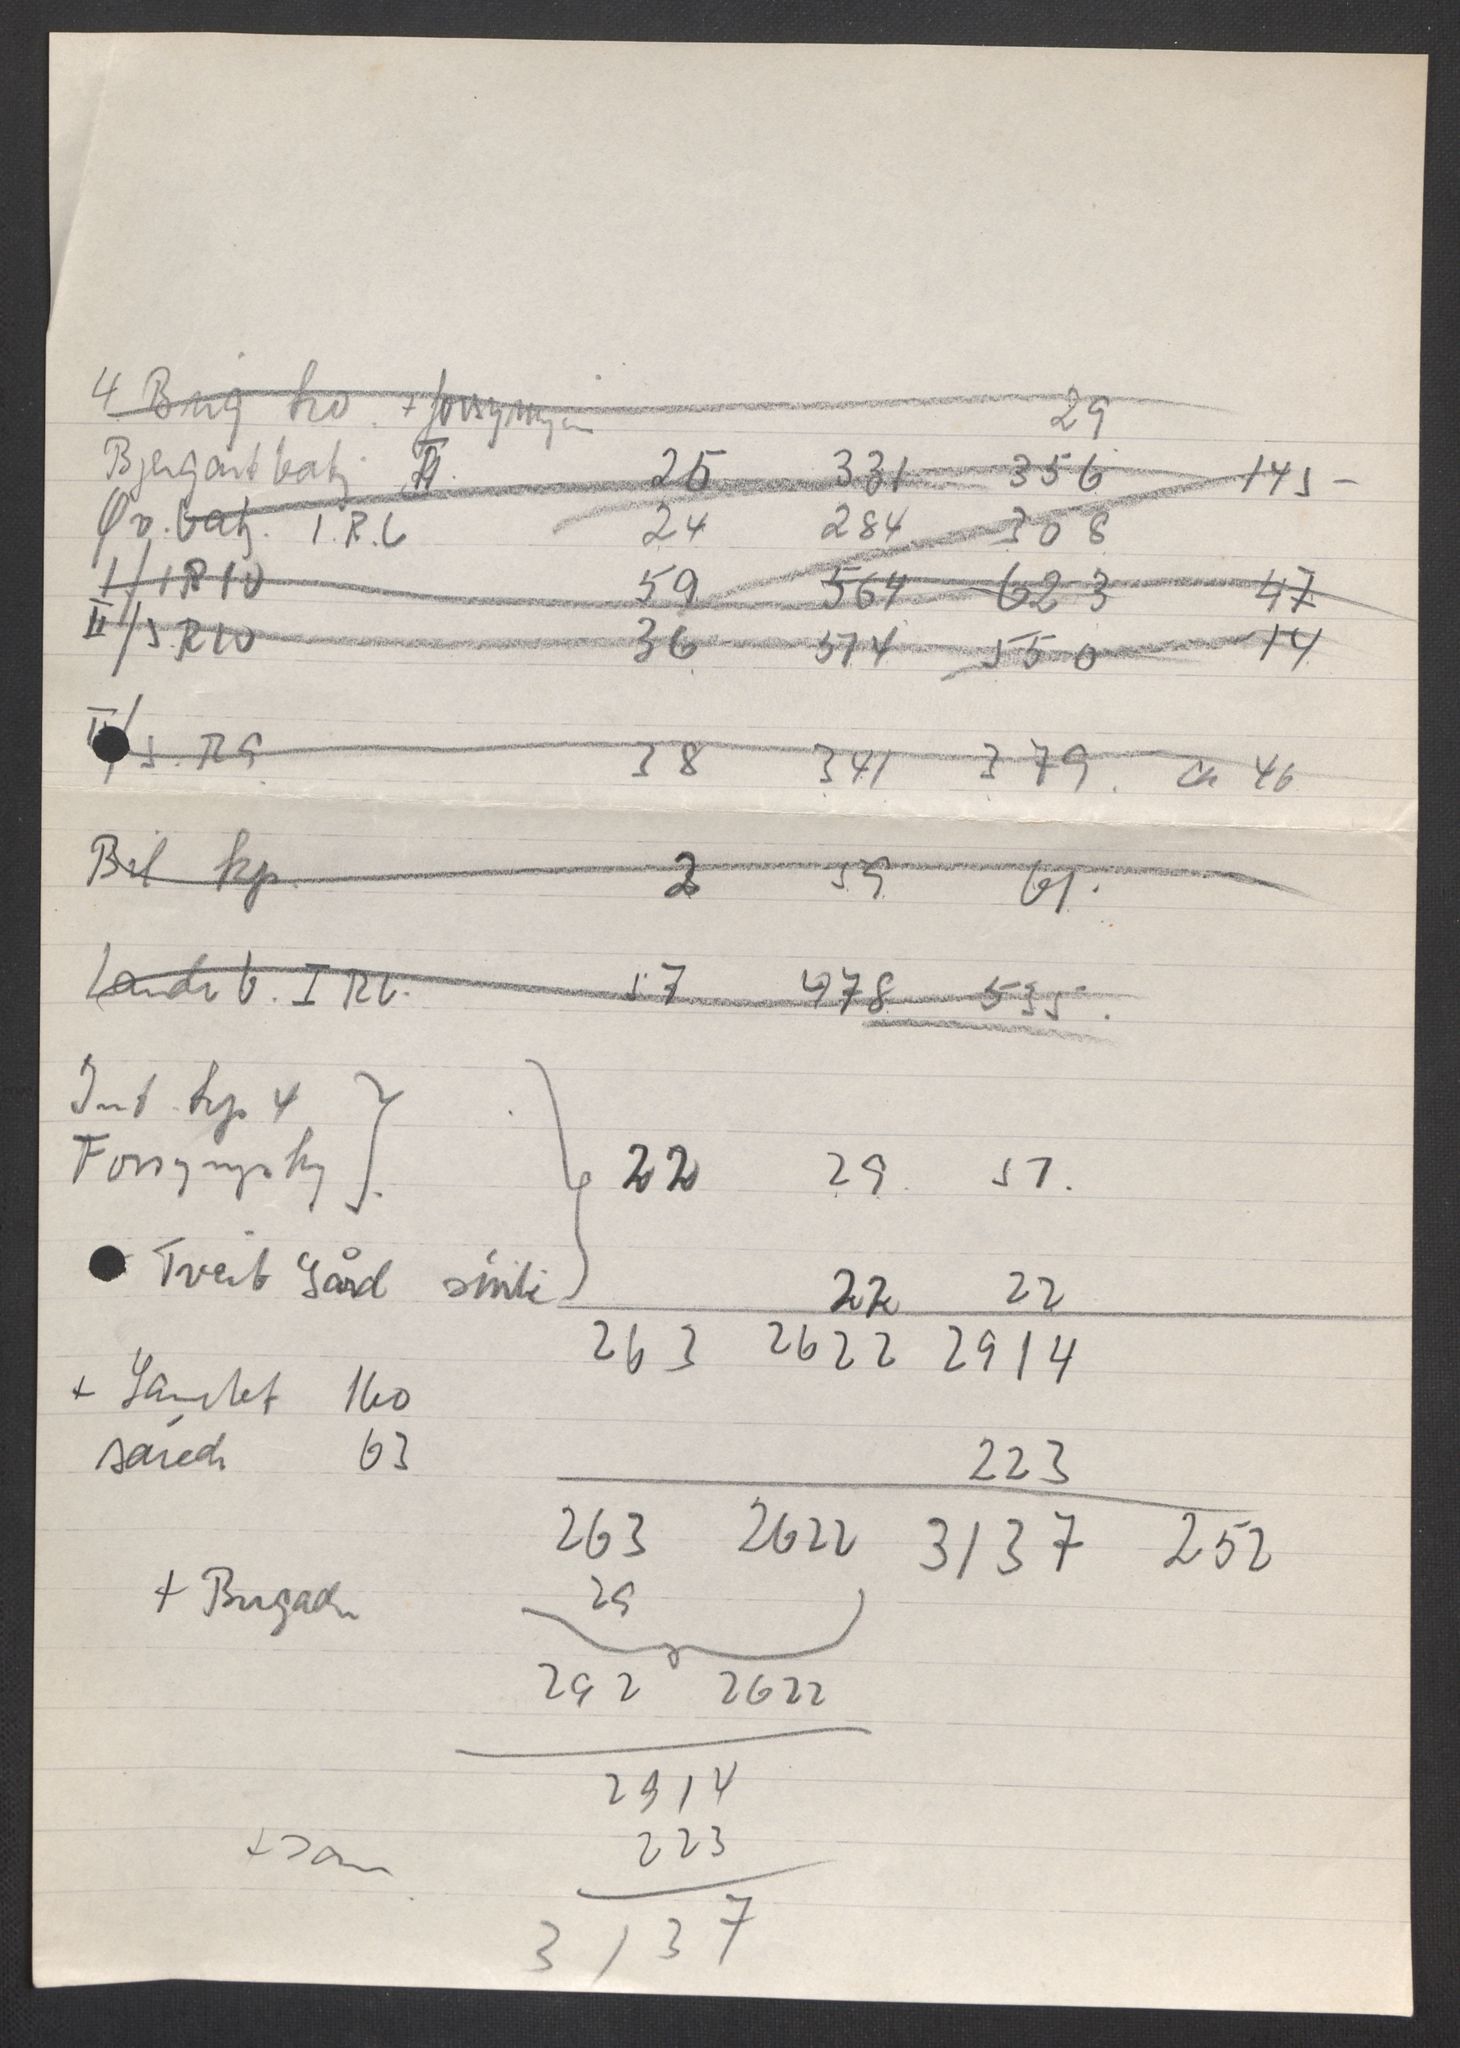 4 Brig ko + forsyning 29
Bergartbatj II. 25 331 356 145 -
Øv. batj. I.R.6 24 284 308
I/IR10 59 564 623 47
II/I.R10 36 514 550 14
II/I.R9 38 341 379. 46
Bil kp. 2 59 61.
Landv b. I R6. 57 478 535.
Int. kp 4
Forsyningskp 22 29. 51.
Tveit Gård 22 22
263 2622 2914
+ 160
sårede 63 223
263 2622 3137 252
+ Brigade 29
292 2622
2914
+ 223
3137